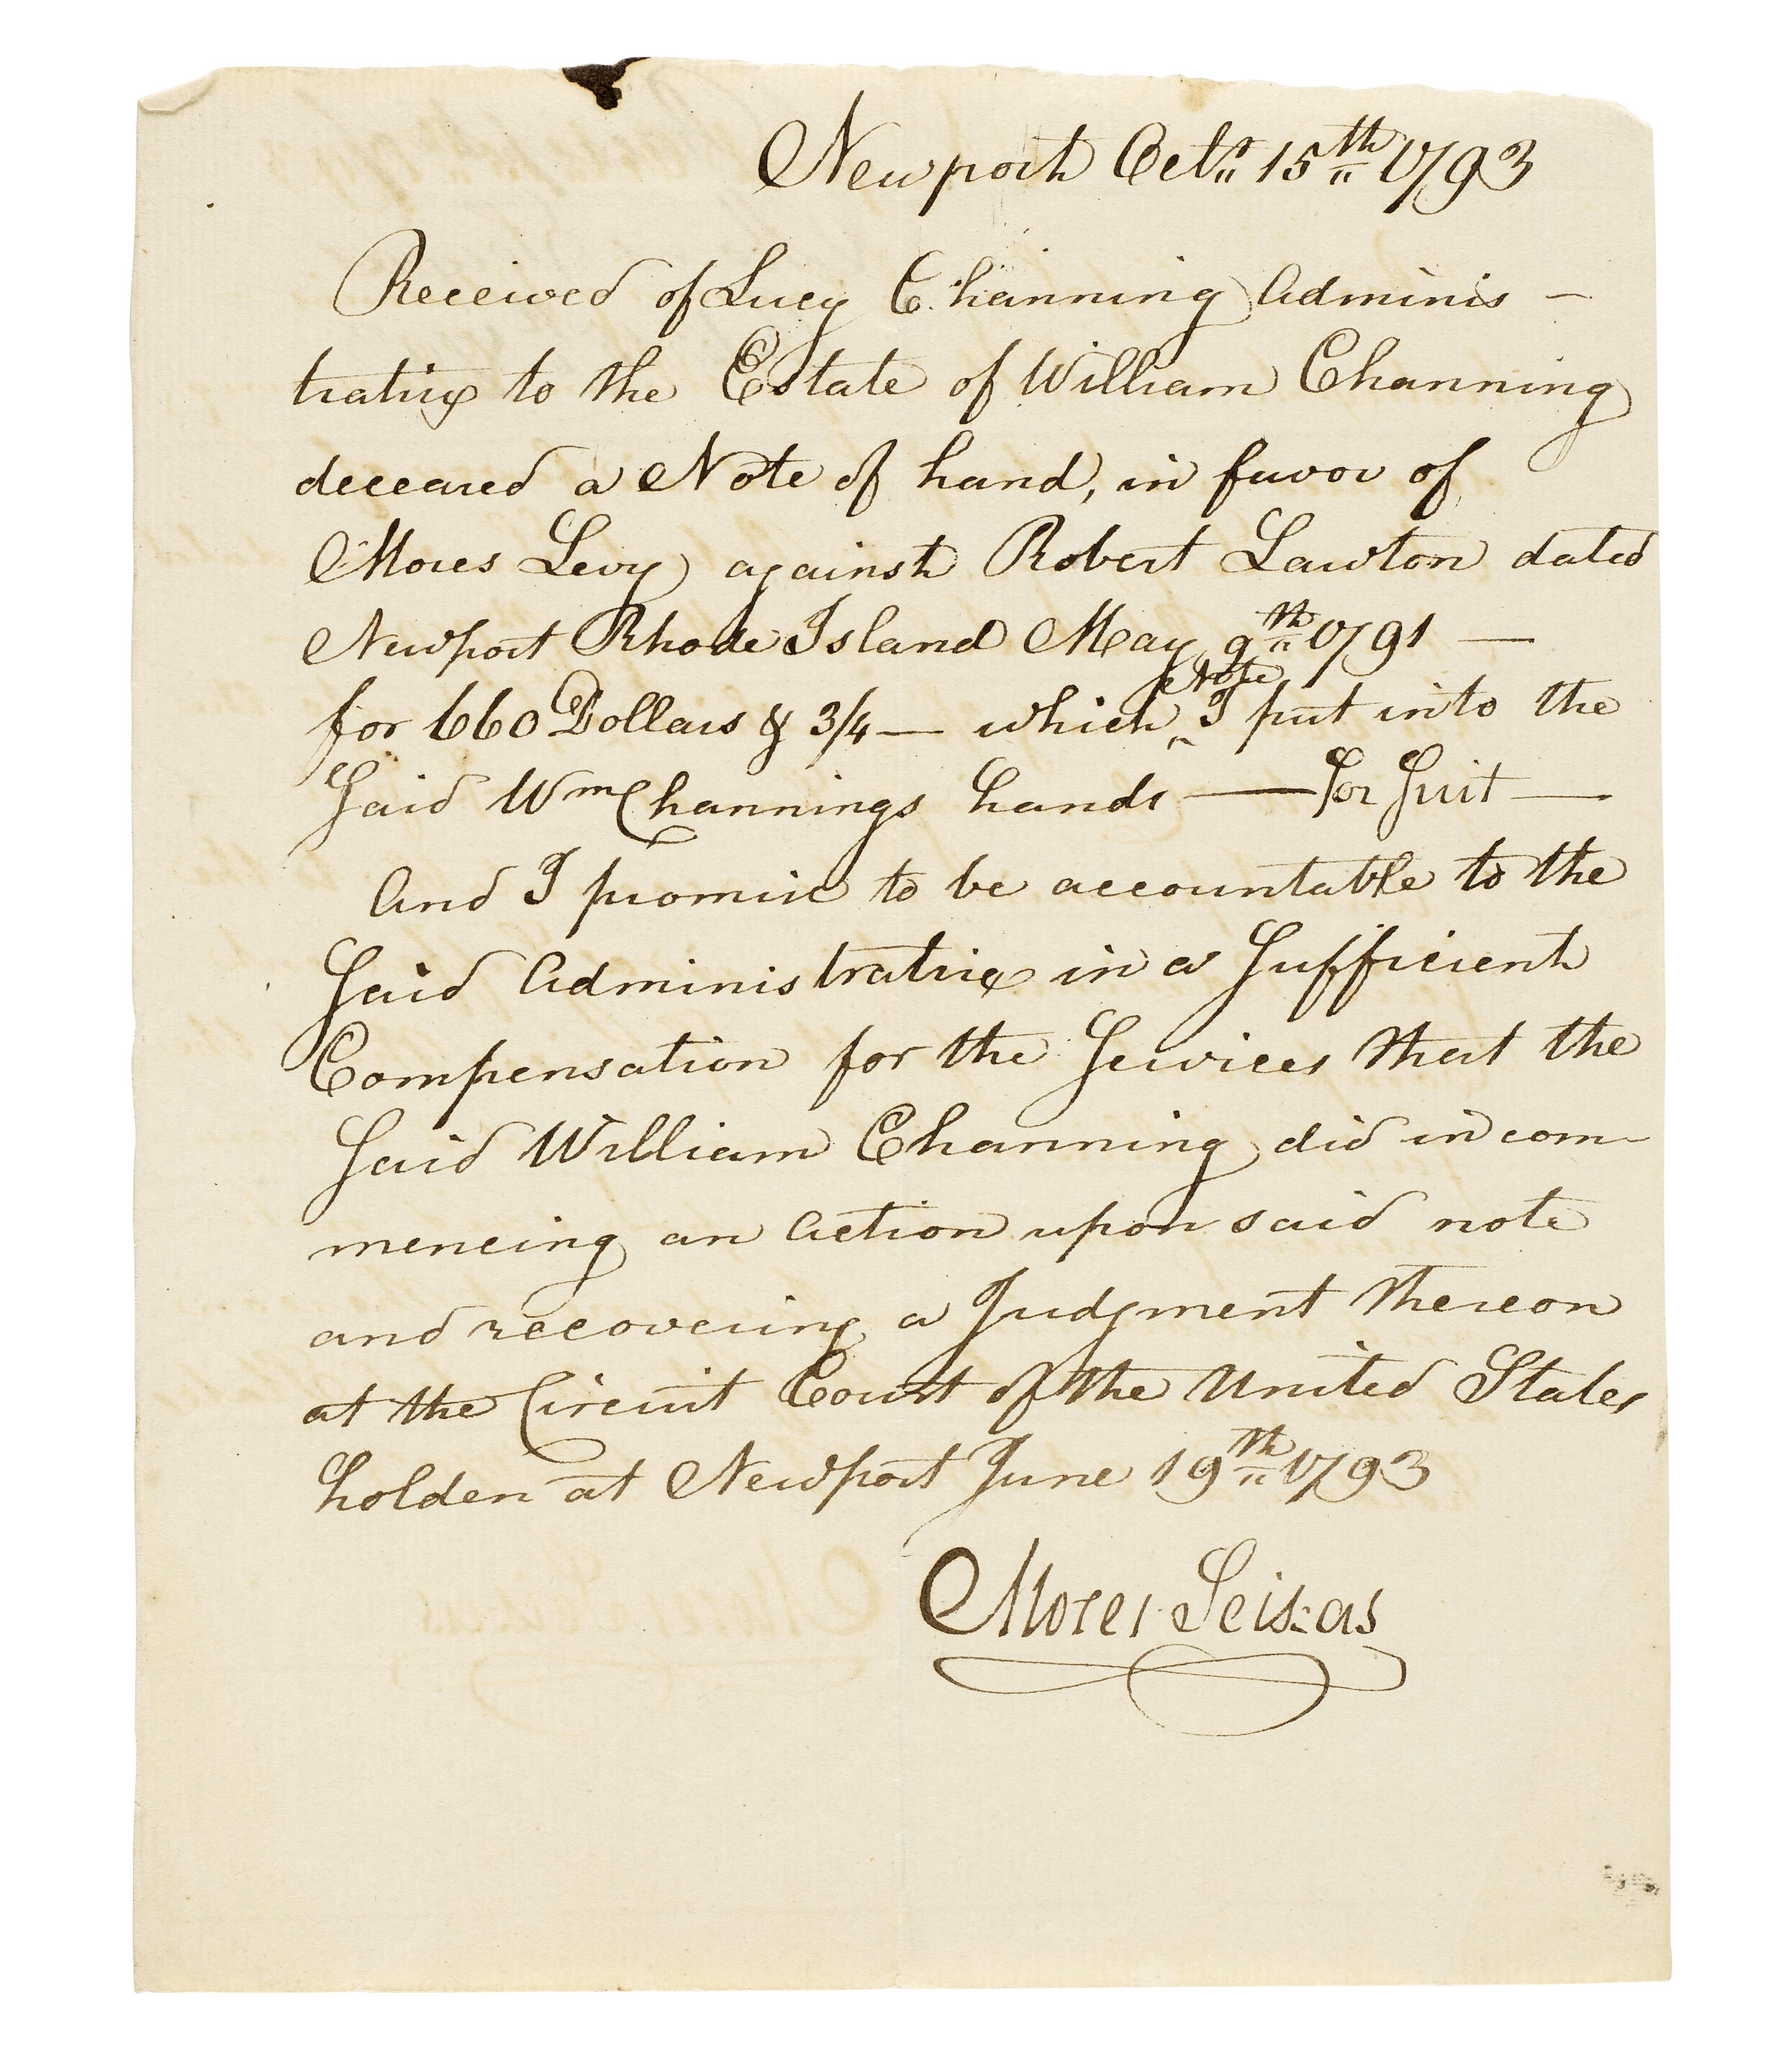 Newport Octr 15th 1793
Received of Lucy Channing Adminis-
tratrix to the Estate of William Channing
deceased a Note of hand, in favor of
Moses Levy against Robert Lawton dated
Newport Rhode Island May 9th 1791 —
for 660 Dollars & 3/4 — which ^Note I put into the
Said Wm Channings hands — For Suit —
And I promise to be accountable to the
Said Administratrix in a Sufficient
Compensation for the Services that the
Said William Channing did in com-
mencing an Action upon said note
and recovering a Judgment thereon
at the Circuit Court of the United States
holden at Newport June 19th 1793
Moses Seixas